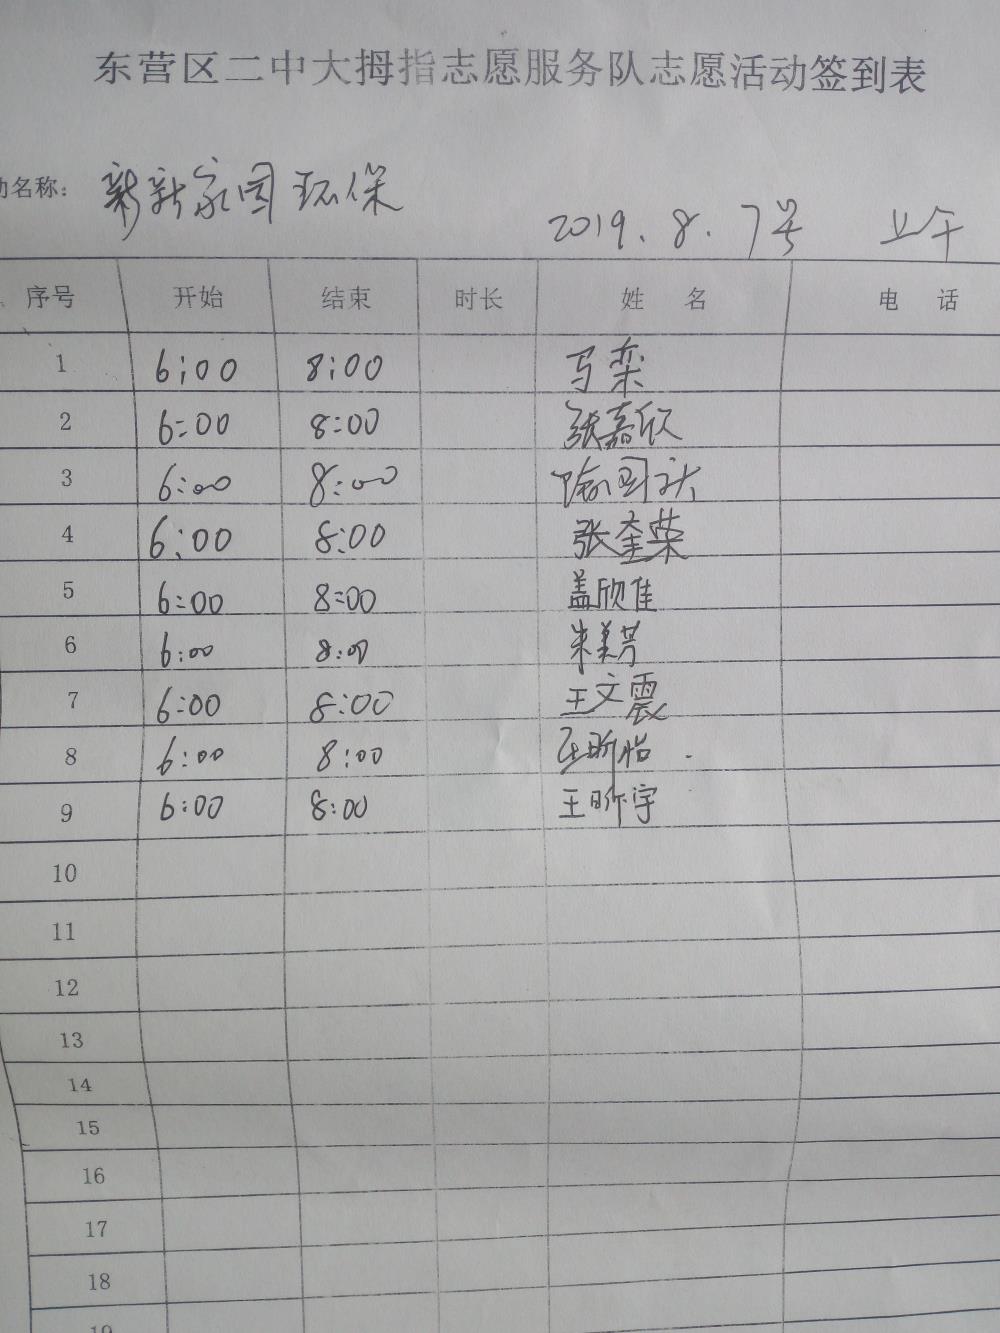 东营区二中大拇指志愿服务队志愿活动签到表
动名称： 新新家园环保
2019.8.7号 上午
序号 开始 结束 时长 姓 名 电 话
1 6:00 8:00 马栾
2 6:00 8:00 张嘉欣
3 6:00 8:00
4 6:00 8:00 张奎荣
5 6:00 8:00 盖欣佳
6 6:00 8:00 朱美芳
7 6:00 8:00 王文震
8 6:00 8:00 王昕怡
9 6:00 8:00 王昕宇
10
11
12
13
14
15
16
17
18
19